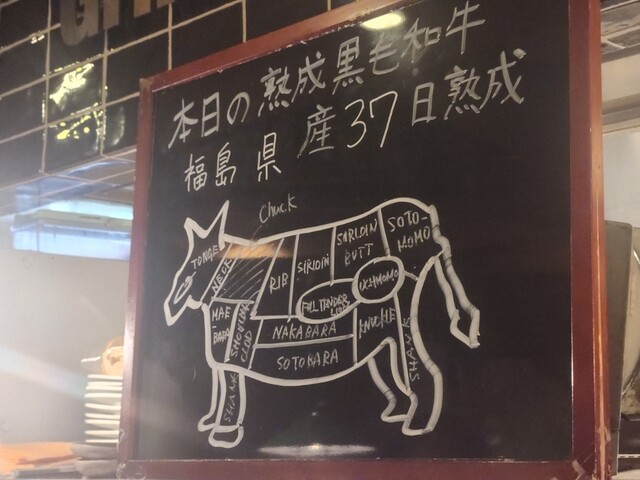 本日の熟成黒毛和牛
福島県産37日熟成
Chuck
TONGE
NECK
RIB
SIRLOIN
SIRLOIN
BUTT
SOTO-
MOMO
UCHIMOMO
MAE-
BARA
SHOULDER
CLOD
NAKABARA
KNUCKLE
SOTOBARA
SHANK
SHANK